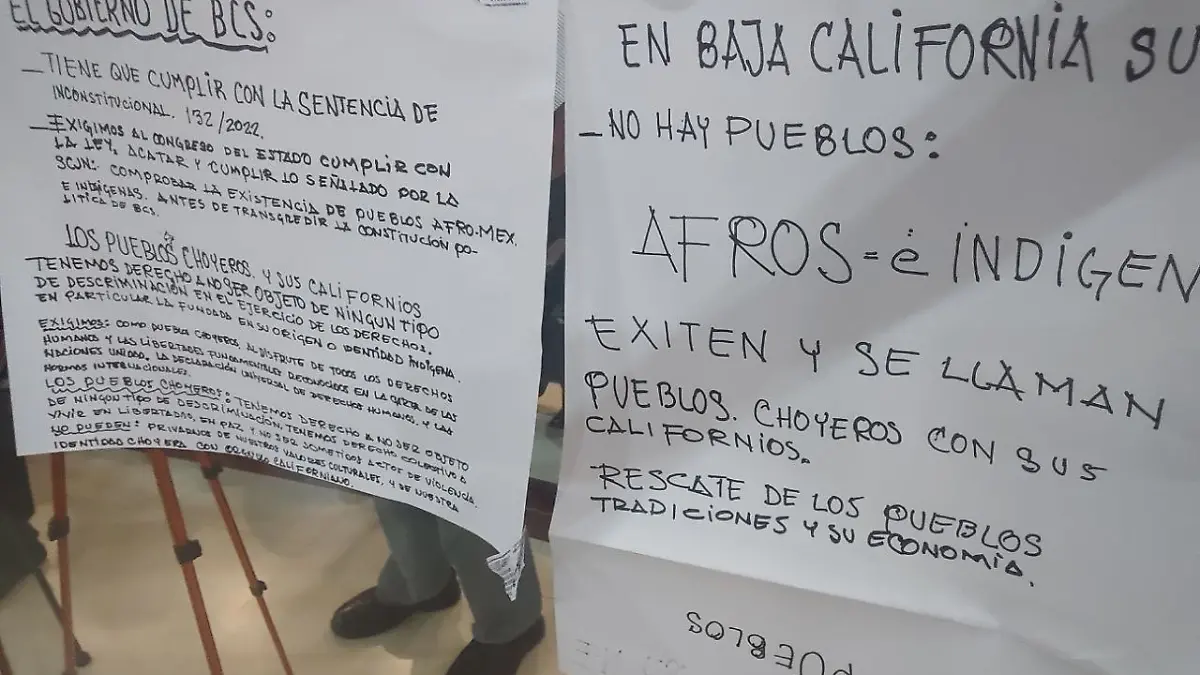 EL GOBIERNO DE BCS:
_TIENE QUE CUMPLIR CON LA SENTENCIA DE
INCONSTITUCIONAL. 132/2022.
_EXIGIMOS AL CONGRESO DEL ESTADO CUMPLIR CON
LA LEY, ACATAR Y CUMPLIR LO SEÑALADO POR LA
SCJN: COMPROBAR LA EXISTENCIA DE PUEBLOS AFRO-MEX.
E INDÍGENAS. ANTES DE TRANSGREDIR LA CONSTITUCIÓN PO-
LITICA DE BCS.
LOS PUEBLOS CHOYEROS. Y SUS CALIFORNIOS
TENEMOS DERECHO A NO SER OBJETO DE NINGUN TIPO
DE DESCRIMINACIÓN EN EL EJERCICIO DE LOS DERECHOS.
EN PARTICULAR LA FUNDADA EN SU ORIGEN O IDENTIDAD INDÍGENA.
EXIGIMOS: COMO PUEBLO CHOYEROS, AL DISFRUTE DE TODOS LOS DERECHOS
HUMANOS Y LAS LIBERTADES FUNDAMENTALES RECONOCIDOS EN LA CARTA DE LAS
NACIONES UNIDAS. LA DECLARACIÓN UNIVERSAL DE DERECHOS HUMANOS. Y LAS
NORMAS INTERNACIONALES.
LOS PUEBLOS CHOYEROS: TENEMOS DERECHO A NO SER OBJETO
DE NINGÚN TIPO DE DESCRIMINACIÓN, TENEMOS DERECHO COLECTIVO A
VIVIR EN LIBERTADES, EN PAZ, Y NO SER SOMETIDOS ACTOS DE VIOLENCIA.
NO PUEDEN: PRIVARNOS DE NUESTROS VALORES CULTURALES, Y DE NUESTRA
IDENTIDAD CHOYERA CON ORGULLO CALIFORNIANO.
EN BAJA CALIFORNIA SU
_NO HAY PUEBLOS:
AFROS-é INDIGEN
EXITEN Y SE LLAMAN
PUEBLOS. CHOYEROS CON SUS
CALIFORNIOS.
RESCATE DE LOS PUEBLOS
TRADICIONES Y SU ECONOMÍA.
PUEBLOS